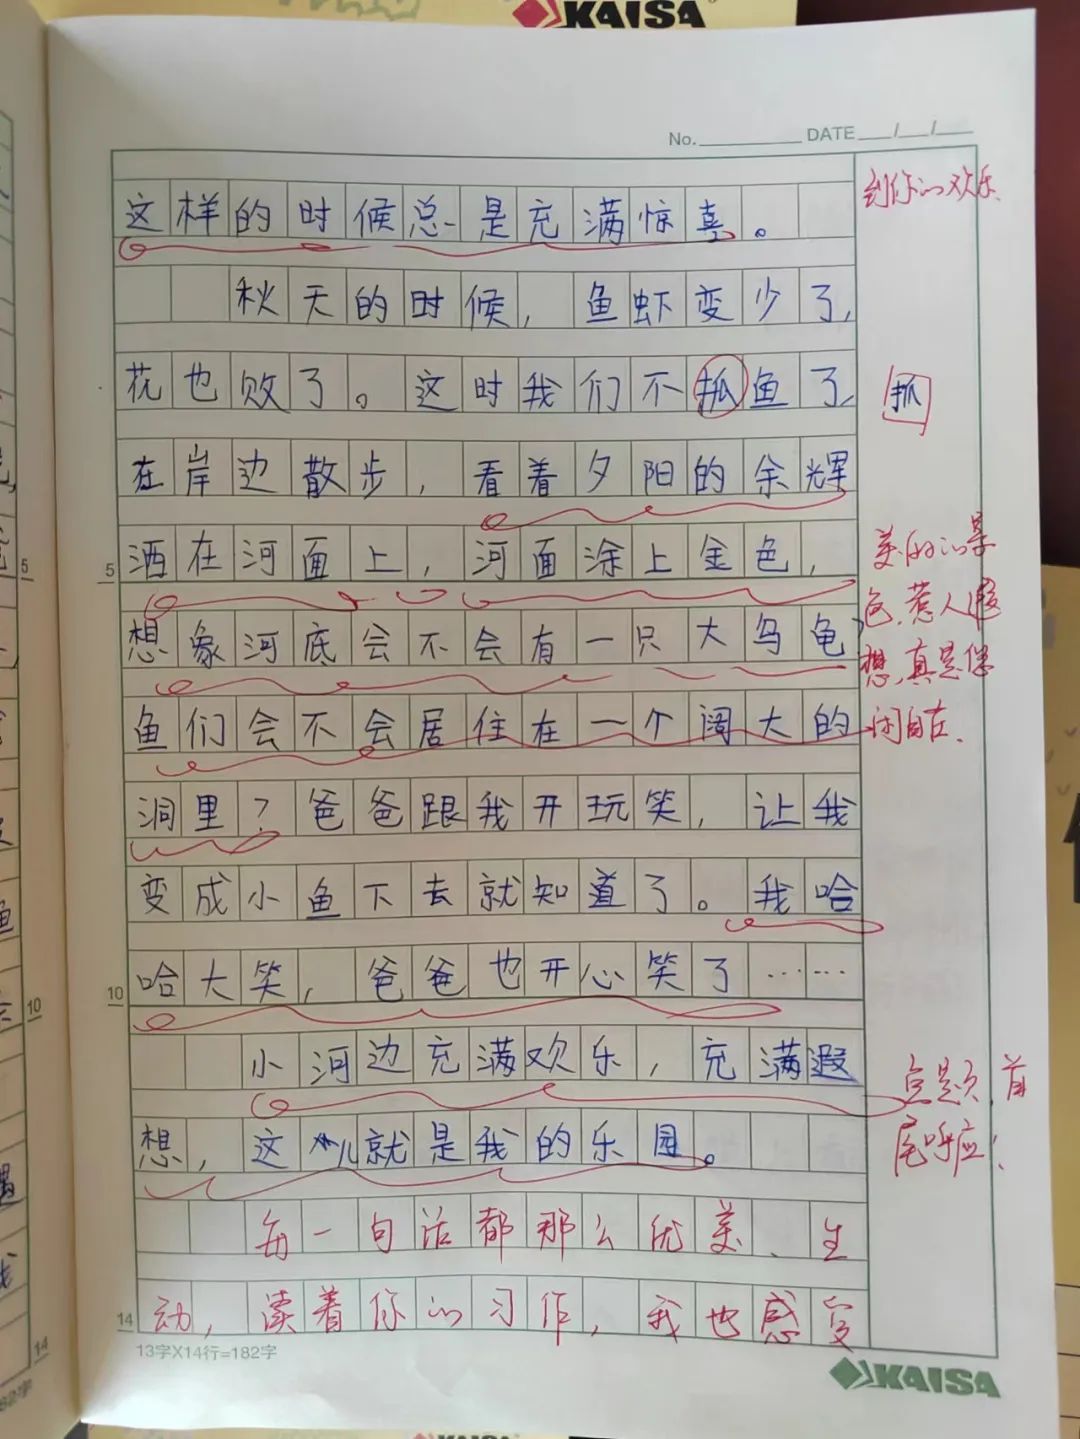 KAISA
No. DATE / /
这样的时候总是充满惊喜。
秋天的时候，鱼虾变少了，
花也败了。这时我们不抓鱼了，
在岸边散步，看着夕阳的余辉
洒在河面上，河面涂上金色，
想象河底会不会有一只大乌龟，
鱼们会不会居住在一个阔大的
洞里？爸爸跟我开玩笑，让我
变成小鱼下去就知道了。我哈
哈大笑，爸爸也开心笑了……
小河边充满欢乐，充满遐
想，这儿就是我的乐园。
每一句话都那么优美、生
动，读着你的习作，我也感受
到你的欢乐
抓
美的的景
色，惹人遐
想，真是悠
闲自在、
点题，首
尾呼应！
5
10
14
13字X14行=182字
KAISA
5
10
14